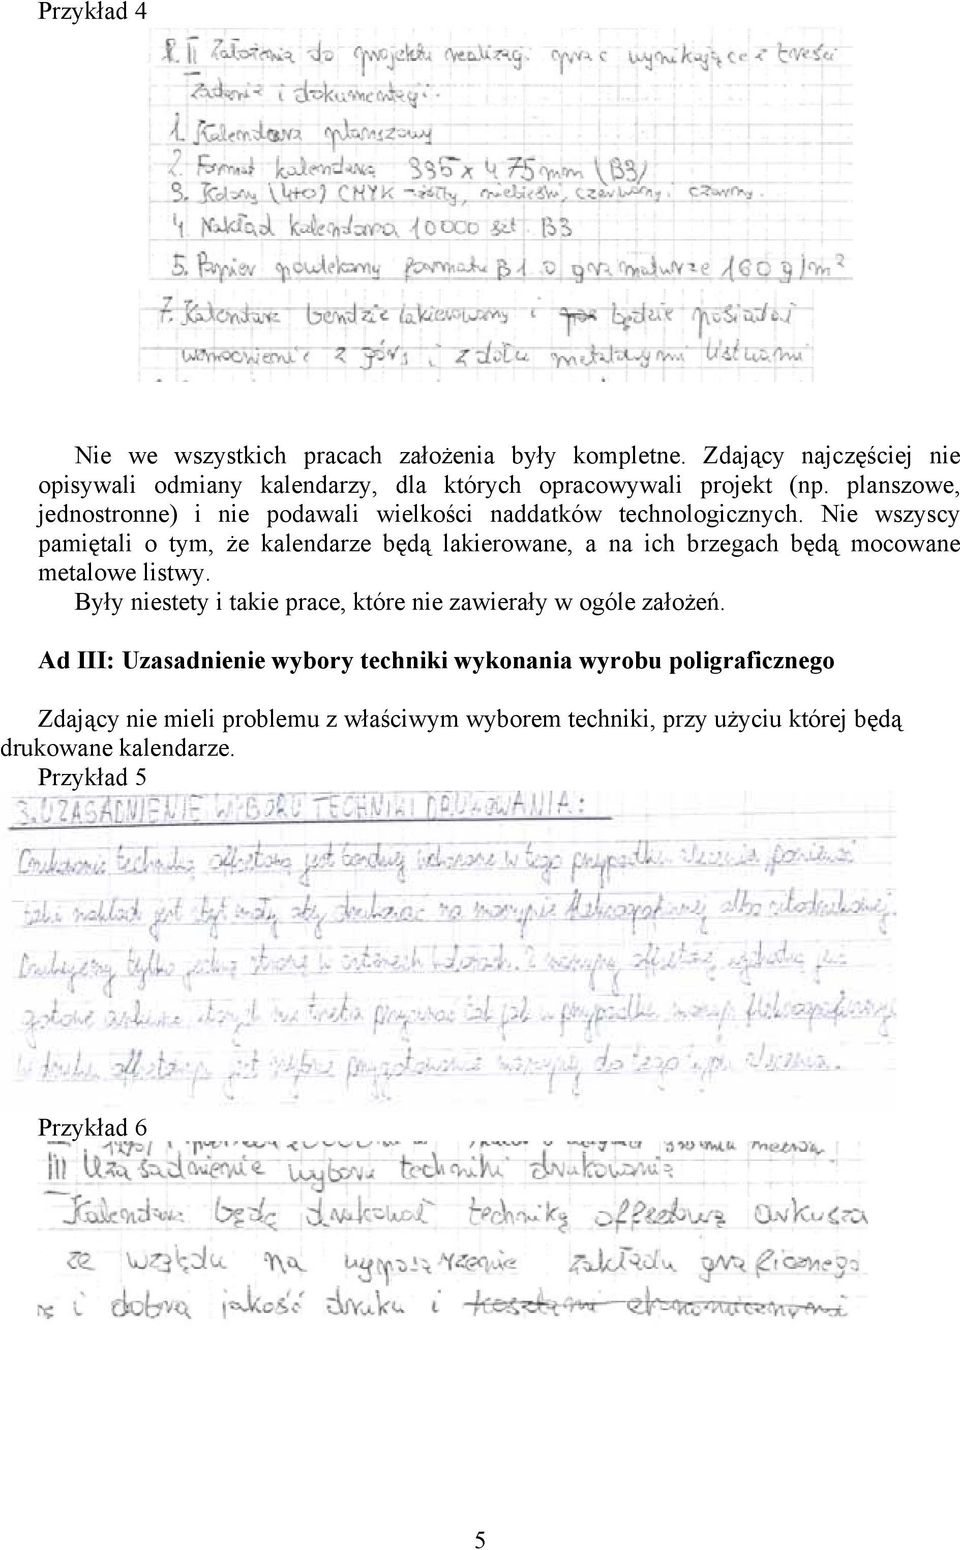 Przykład 4
II Założenia do projektu realizacji prac wynikające z treści
zadania i dokumentacji.
1. Kalendarz planszowy
2. Format kalendarza 335 x 475 mm (B3)
3. Kolory (4+0) CMYK - żółty, niebieski, czerwony, czarny.
4. Nakład kalendarza 10000 szt. B3
5. Papier powlekany formatu B1 o gramaturze 160 g/m²
7. Kalendarz bendzie lakierowany i będzie posiadał
wzmocnienie z góry i z dołu metalowymi listwami
Nie we wszystkich pracach założenia były kompletne. Zdający najczęściej nie
opisywali odmiany kalendarzy, dla których opracowywali projekt (np. planszowe,
jednostronne) i nie podawali wielkości naddatków technologicznych. Nie wszyscy
pamiętali o tym, że kalendarze będą lakierowane, a na ich brzegach będą mocowane
metalowe listwy.
Były niestety i takie prace, które nie zawierały w ogóle założeń.
Ad III: Uzasadnienie wybory techniki wykonania wyrobu poligraficznego
Zdający nie mieli problemu z właściwym wyborem techniki, przy użyciu której będą
drukowane kalendarze.
Przykład 5
3. UZASADNIENIE WYBORU TECHNIKI DRUKOWANIA:
Drukowanie techniką offsetową jest bardziej wskazane w tego przypadku zlecenia ponieważ
taki nakład jest zbyt mały aby drukować na maszynie fleksograficznej albo rotodrukowej.
Drukujemy tylko jedną stronę w czterech kolorach. Z maszyny offsetowej wychodzą już
gotowe arkusze, których nie trzeba przycinać tak jak w przypadku maszyn fleksograficznej
w druku offsetowym jest szybsze przygotowanie maszyny do tego typu zlecenia.
Przykład 6
III Uzasadnienie wyboru techniki drukowania
Kalendarz będę drukował techniką offsetową arkusza
ze względu na wyposarzenie zakładu graficznego
i dobrą jakość druku i kosztami ekonomicznymi
5